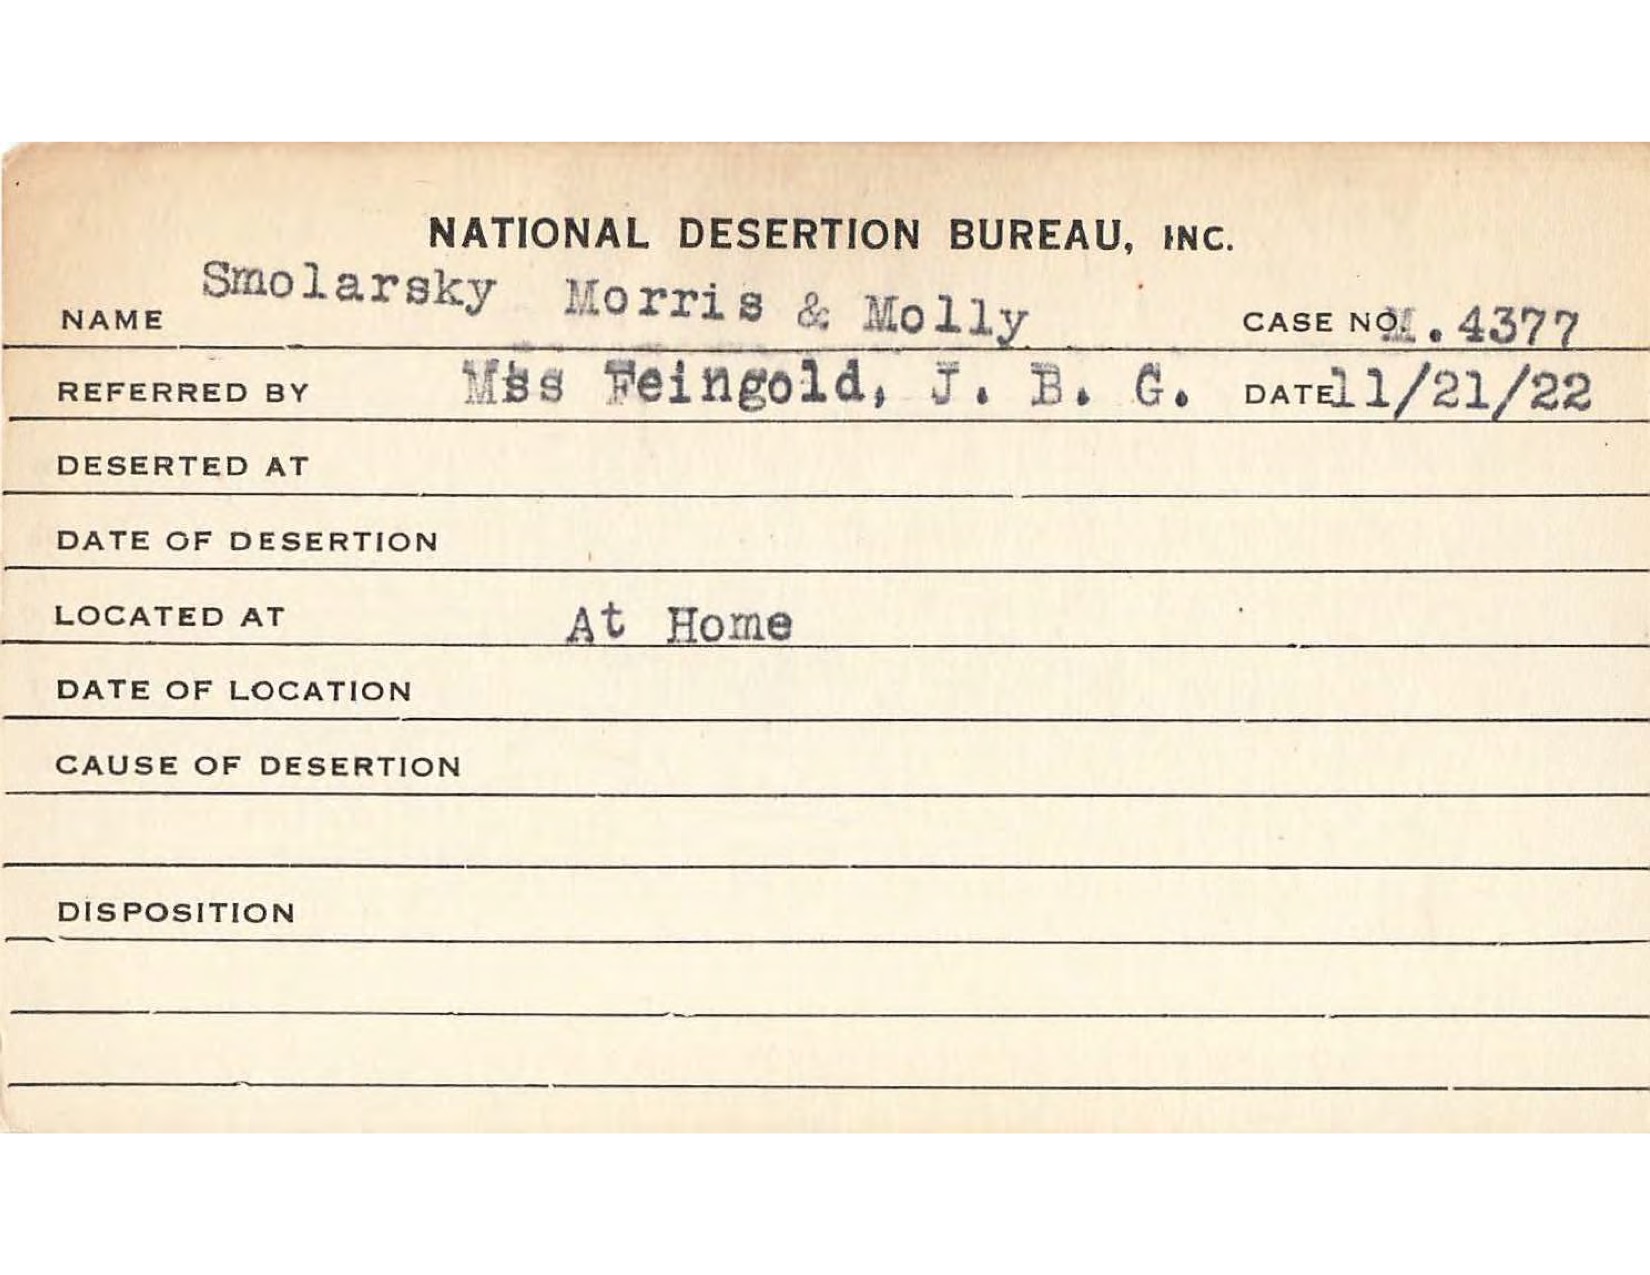 NATIONAL DESERTION BUREAU, INC.
NAME Smolarsky Morris & Molly CASE NO. M.4377
REFERRED BY Miss Feingold, J. B. G. DATE 11/21/22
DESERTED AT
DATE OF DESERTION
LOCATED AT At Home
DATE OF LOCATION
CAUSE OF DESERTION
DISPOSITION